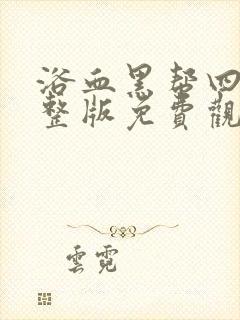 浴血黑帮四
整版免費觀
雲霓